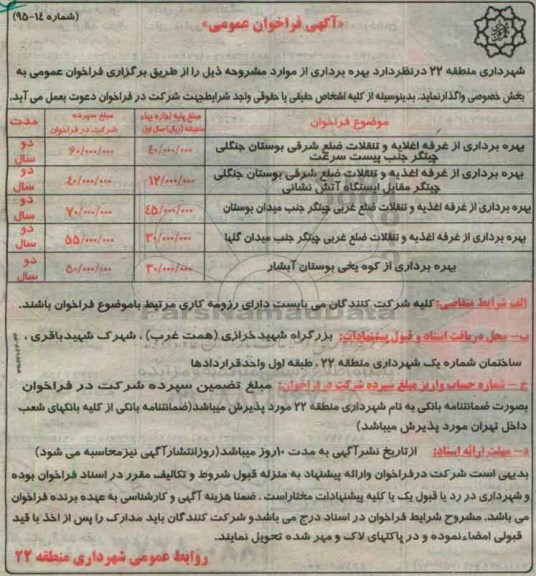 (شماره ۱۴-۹۵)
«آگهی فراخوان عمومی»
شهرداری منطقه ۲۲ درنظردارد بهره برداری از موارد مشروحه ذیل را از طریق برگزاری فراخوان عمومی به
بخش خصوصی واگذارنماید. بدینوسیله از کلیه اشخاص حقیقی یا حقوقی واجد شرایط جهت شرکت در فراخوان دعوت بعمل می آید.
موضوع فراخوان | مبلغ پایه اجاره بهاء ماهیانه (ریال) سال اول | مبلغ سپرده شرکت در فراخوان | مدت
بهره برداری از غرفه اغذیه و تنقلات ضلع شرقی بوستان جنگلی چیتگر جنب پیست سرعت | ۴۰/۰۰۰/۰۰۰ | ۶۰/۰۰۰/۰۰۰ | دو سال
بهره برداری از غرفه اغذیه و تنقلات ضلع شرقی بوستان جنگلی چیتگر مقابل ایستگاه آتش نشانی | ۱۲/۰۰۰/۰۰۰ | ۴۰/۰۰۰/۰۰۰ | دو سال
بهره برداری از غرفه اغذیه و تنقلات ضلع غربی چیتگر جنب میدان بوستان | ۴۵/۰۰۰/۰۰۰ | ۷۰/۰۰۰/۰۰۰ | دو سال
بهره برداری از غرفه اغذیه و تنقلات ضلع غربی چیتگر جنب میدان گلها | ۳۰/۰۰۰/۰۰۰ | ۵۵/۰۰۰/۰۰۰ | دو سال
بهره برداری از کوه یخی بوستان آبشار | ۳۰/۰۰۰/۰۰۰ | ۵۰/۰۰۰/۰۰۰ | دو سال
الف شرایط متقاضی: کلیه شرکت کنندگان می بایست دارای رزومه کاری مرتبط باموضوع فراخوان باشند.
ب- محل دریافت اسناد و قبول پیشنهادات: بزرگراه شهید خرازی (همت غرب)، شهرک شهیدباقری،
ساختمان شماره یک شهرداری منطقه ۲۲، طبقه اول واحدقراردادها
ج- شماره حساب واریز مبلغ سپرده شرکت در فراخوان: مبلغ تضمین سپرده شرکت در فراخوان
بصورت ضمانتنامه بانکی به نام شهرداری منطقه ۲۲ مورد پذیرش میباشد(ضمانتنامه بانکی از کلیه بانکهای شعب
داخل تهران مورد پذیرش میباشد)
د- مهلت ارائه اسناد: ازتاریخ نشرآگهی به مدت ۱۰روز میباشد(روزانتشارآگهی نیزمحاسبه می شود)
بدیهی است شرکت درفراخوان وارائه پیشنهاد به منزله قبول شروط و تکالیف مقرر در اسناد فراخوان بوده
و شهرداری در رد یا قبول یک یا کلیه پیشنهادات مختاراست. ضمنا هزینه آگهی و کارشناسی به عهده برنده فراخوان
می باشد. مشروح شرایط فراخوان در اسناد درج می باشدو شرکت کنندگان باید مدارک را پس از اخذ با قید
قبولی امضاءنموده و در پاکتهای لاک و مهر شده تحویل نمایند.
روابط عمومی شهرداری منطقه ۲۲
ParsNamadData